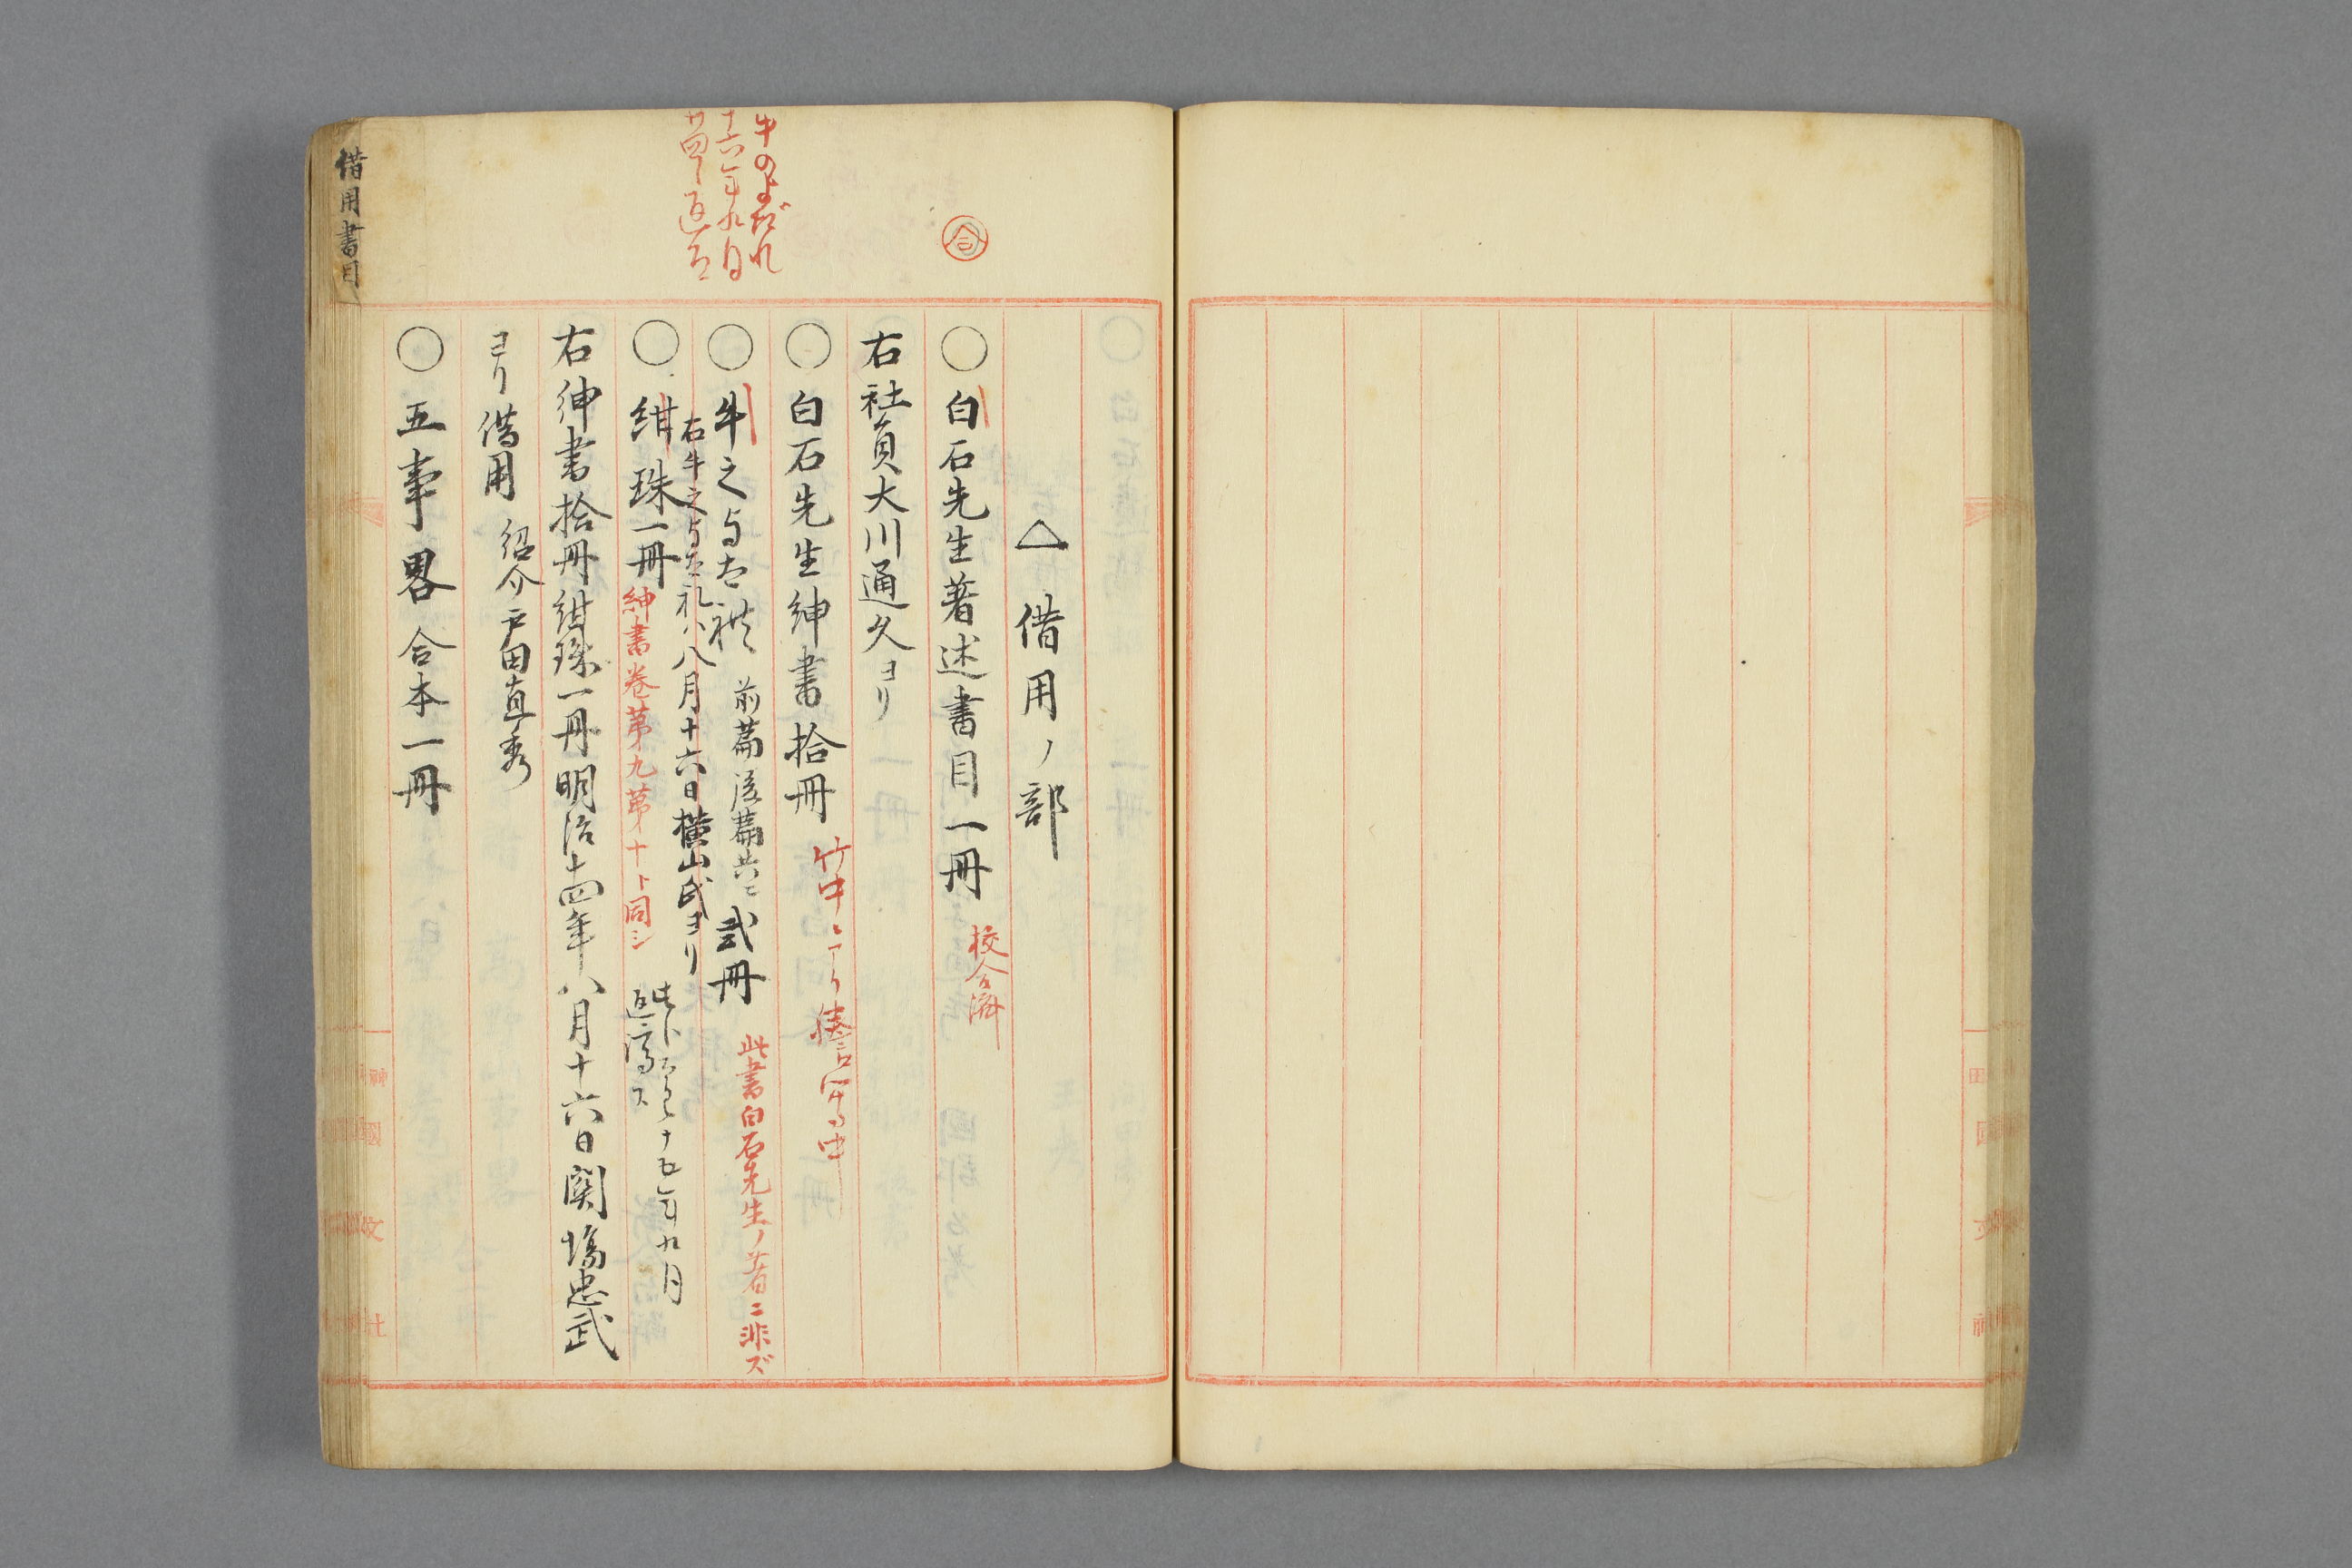 △ 借用ノ部
〇 白石先生著述書目一冊 校合済
右社員大川通久ヨリ
〇 白石先生紳書拾冊 竹中ニテ謄写中
〇 牛之与太礼 前篇後篇共ニ 弐冊 此書白石先生ノ著ニ非ズ
右牛之与太礼八八月十六日横山氏ヨリ
〇 紺珠一冊 紳書巻第九第十ト同シ
十五年九月
返済ス
右紳書拾冊紺珠一冊明治十四年八月十六日関場忠武
ヨリ借用 紹介戸田直秀
〇 五事畧 合本一冊
牛のよだれ
十六年九月
返却
借用書目